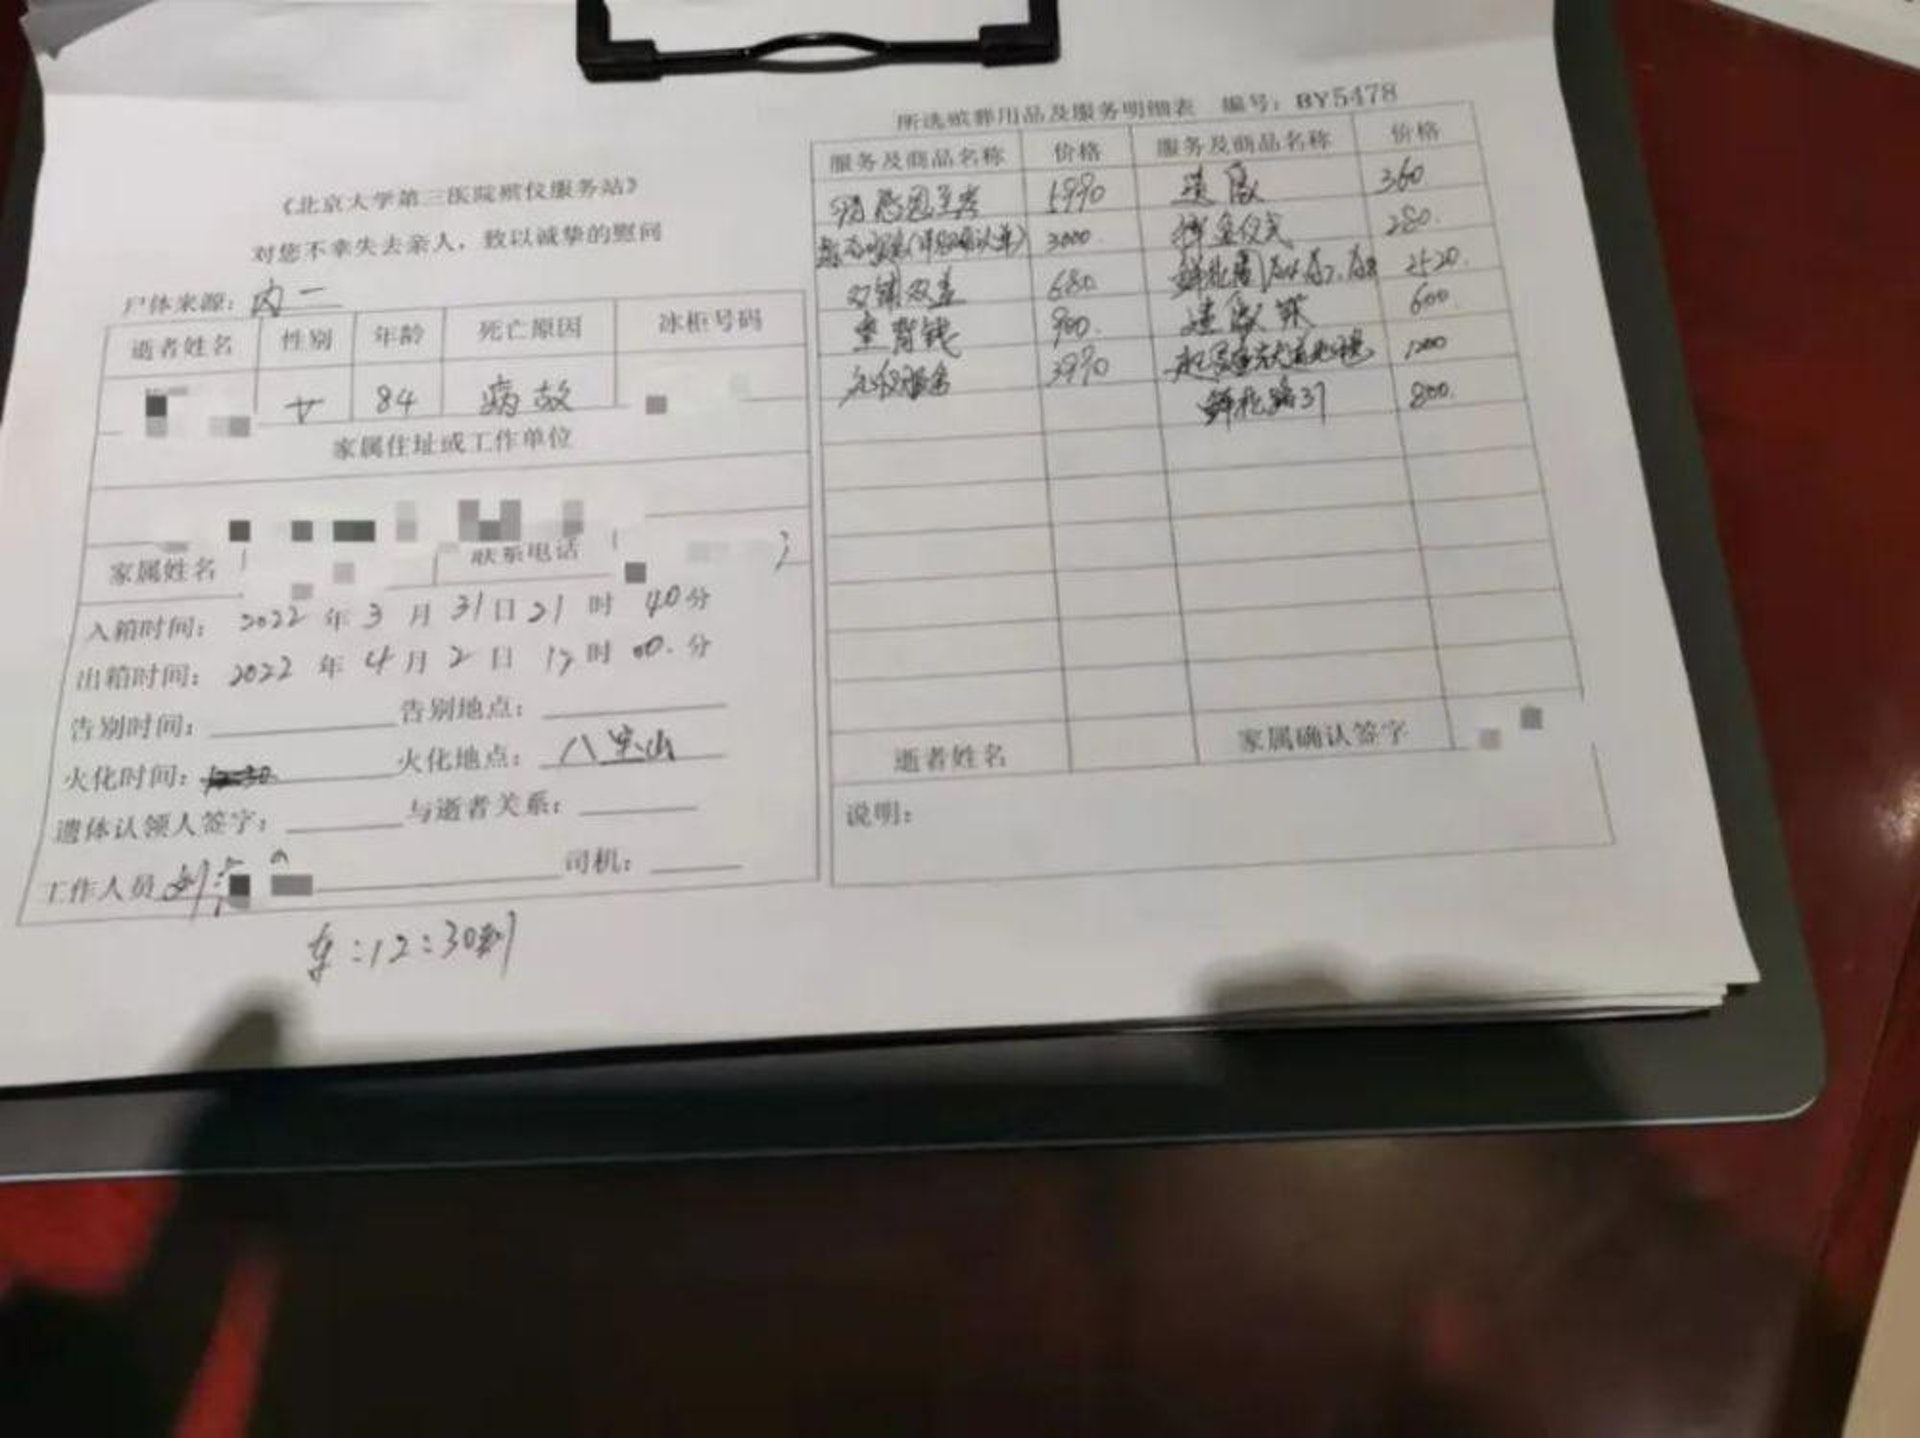 《北京大学第三医院殡仪服务站》
对您不幸失去亲人，致以诚挚的慰问
尸体来源：内二
逝者姓名 性别 年龄 死亡原因 冰柜号码
女 84 病故
家属住址或工作单位
家属姓名 联系电话
入箱时间：2022年3月31日21时40分
出箱时间：2022年4月2日12时00.分
告别时间： 告别地点：
火化时间： 火化地点：八宝山
遗体认领人签字： 与逝者关系：
工作人员 刘 司机：
车：12：30到
所选殡葬用品及服务明细表 编号：BY5478
服务及商品名称 价格 服务及商品名称 价格
5990 遗像 360
3000 仪式 280.
双铺双盖 680 鲜花 2520.
垫背钱 900. 遗像 600.
礼仪服务 3990 1200
鲜花 800.
逝者姓名 家属确认签字
说明：